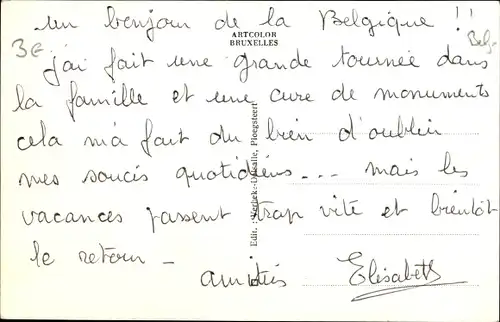 un bonjour de la Belgique !!
ARTCOLOR
BRUXELLES
3€
Belg.
j'ai fait une grande tournée dans
la famille et une cure de monuments
cela m'a fait du bien d'oublier
mes soucis quotidiens... mais les
vacances passent trop vite et bientôt
le retour -
amitiés Elisabeth
Edit. : Ploegsteert